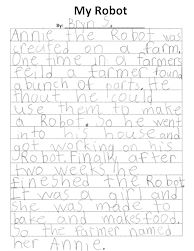 My Robot
By: Bryn S.
Annie the Robot was
created on a farm.
One time in a farmers
feild a farmer found
a bunch of parts. He
thout he could
use them to make
a Robot. So he went
into his house and
got working on his
Robot. Finally after
two weeks he
fineshed the Robot
It was a girl and
she was made to
bake and makes food.
So the farmer named
her Annie.